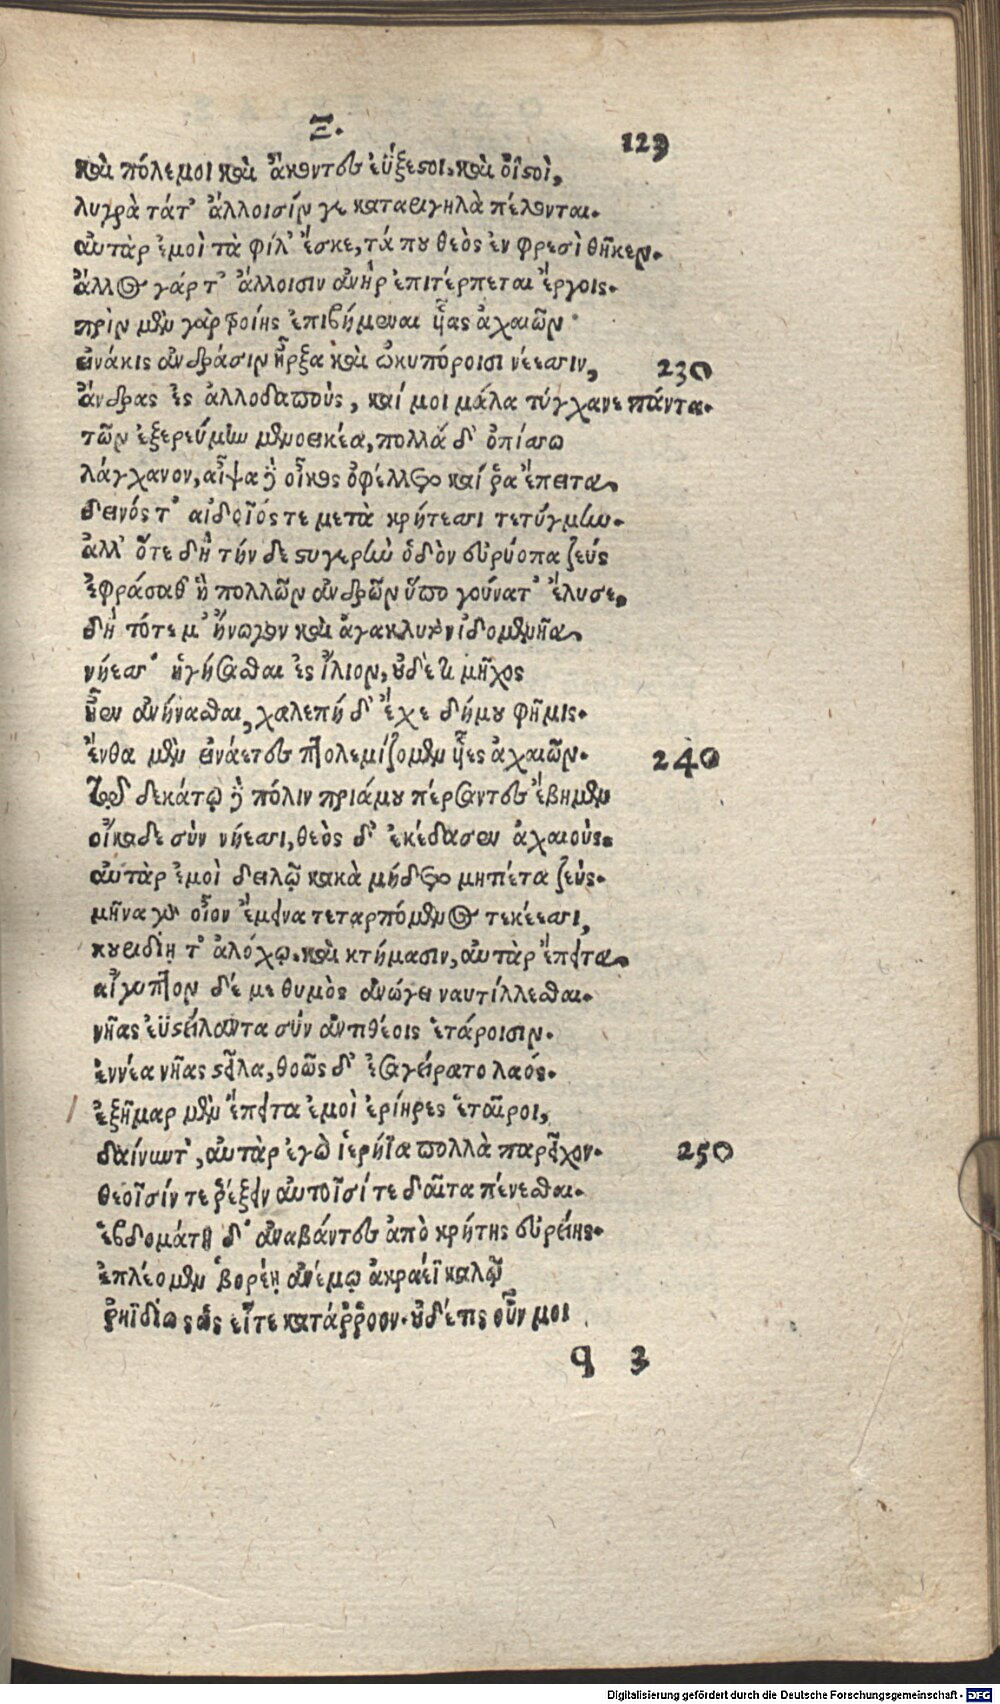 Ξ.
123
καὶ πόλεμοι καὶ ἄκοντες ἐΰξεστοι, καὶ ὀϊστοὶ,
λυγρὰ τάτ' ἄλλοισίν γε καταειγηλὰ πέλονται.
αὐτὰρ ἐμοὶ τὰ φίλ' ἔσκε, τά που θεὸς ἐν φρεσὶ θῆκεν.
ἄλλος γάρ τ' ἄλλοισιν ἀνὴρ ἐπιτέρπεται ἔργοις.
πρὶν μὲν γὰρ τροίης ἐπιβήμεναι ἧας ἀχαιῶν
εἰνάκις ἀνδράσιν ἦρξα καὶ ὠκυπόροισι νέεσσιν,
230
ἄνδρας ἐς ἀλλοδαποὺς, καί μοι μάλα τύγχανε πάντα.
τῶν ἐξερεύμην μενοεικέα, πολλὰ δ' ὀπίσσω
λάγχανον, αἶψα δὲ οἶκος ὀφέλλετο καί ῥα ἔπειτα
δεινός τ' αἰδοῖός τε μετὰ κρήτεσσι τετύγμην.
ἀλλ' ὅτε δὴ τήν δε στυγερὴν ὁδὸν εὐρύοπα ζεύς
ἐφράσαθ' ἣ πολλῶν ἀνδρῶν ὕπο γούνατ' ἔλυσε,
δὴ τότε μ' ἤνωγον καὶ ἀγακλυτὸν ἰδομενῆα
νήεσσ' ἡγήσασθαι ἐς ἴλιον, οὐδέ τι μῆχος
ἦεν ἀνήνασθαι, χαλεπὴ δ' ἔχε δήμου φῆμις.
ἔνθα μὲν εἰνάετες πτολεμίζομεν ἧες ἀχαιῶν.
240
τῷ δὲ δεκάτῳ δὲ πόλιν πριάμου πέρσαντες ἔβημεν
οἴκαδε σὺν νήεσσι, θεὸς δ' ἐκέδασεν ἀχαιούς.
αὐτὰρ ἐμοὶ δειλῷ κακὰ μήδετο μητίετα ζεύς.
μῆνα γὰρ οἶον ἔμεινα τεταρπόμενος τεκέεσσι,
κουειδίῃ τ' ἀλόχῳ. καὶ κτήμασιν, αὐτὰρ ἔπειτα
αἴγυπτον δέ με θυμὸς ἀνώγει ναυτίλλεσθαι.
νῆας ἐϋστείλαντα σύν ἀντιθέοις ἑτάροισιν.
ἐννέα νῆας στεῖλα, θοῶς δ' ἐσαγείρατο λαός.
ἑξῆμαρ μὲν ἔπειτα ἐμοὶ ἐρίηρες ἑταῖροι,
δαίνυντ', αὐτὰρ ἐγὼ ἱερήϊα πολλὰ παρεῖχον.
250
θεοῖσίν τε ῥέξειν αὐτοῖσί τε δαῖτα πένεσθαι.
ἑβδομάτῃ δ' ἀναβάντες ἀπὸ κρήτης εὐρείης.
ἐπλέομεν βορέῃ ἀνέμῳ ἀκραέϊ καλῷ
ῥηϊδίως ὡς εἴτε κατάῤῥοον. οὐδέ τις οὖν μοι
q 3
Digitalisierung gefördert durch die Deutsche Forschungsgemeinschaft - DFG